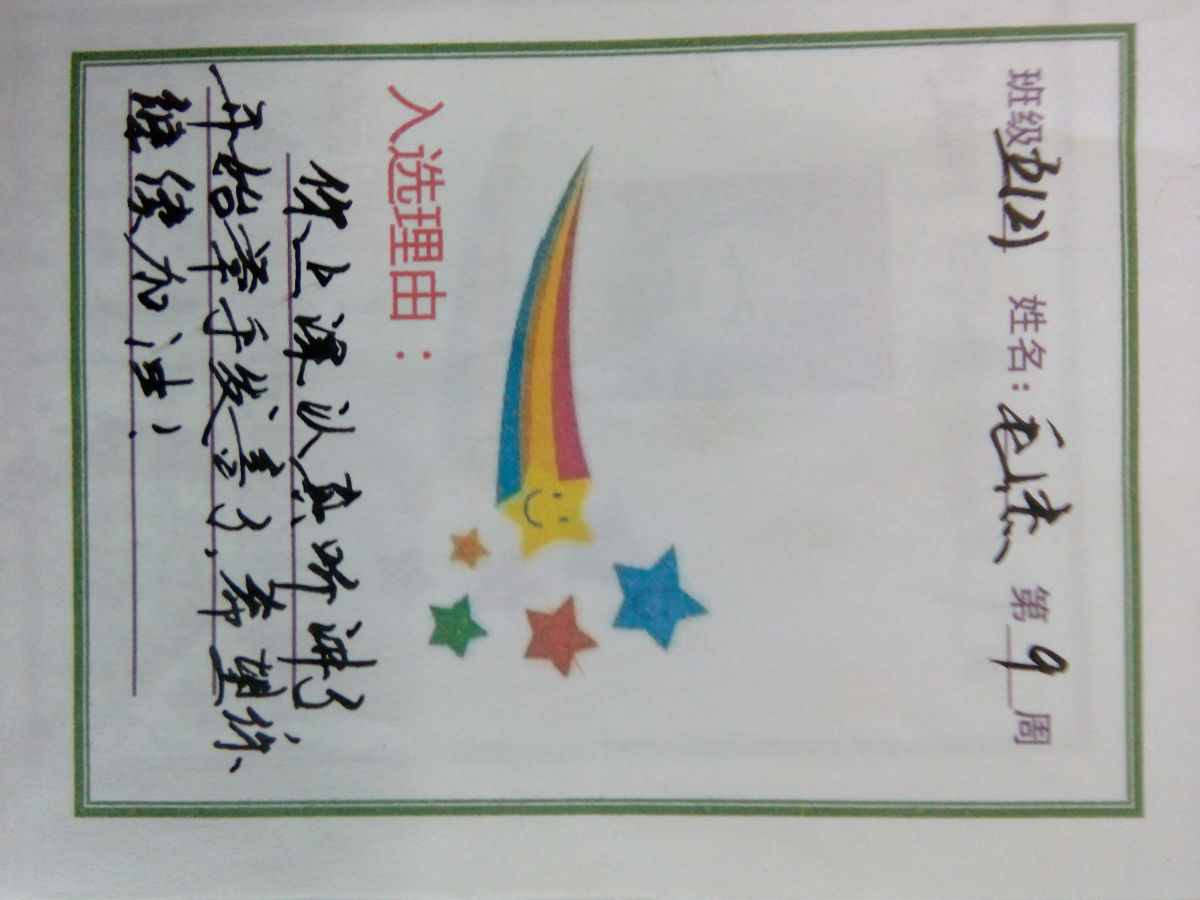 班级五(2) 姓名:毛杰 第9周
入选理由:
你上课认真听讲了
开始举手发言了,希望你
继续加油!